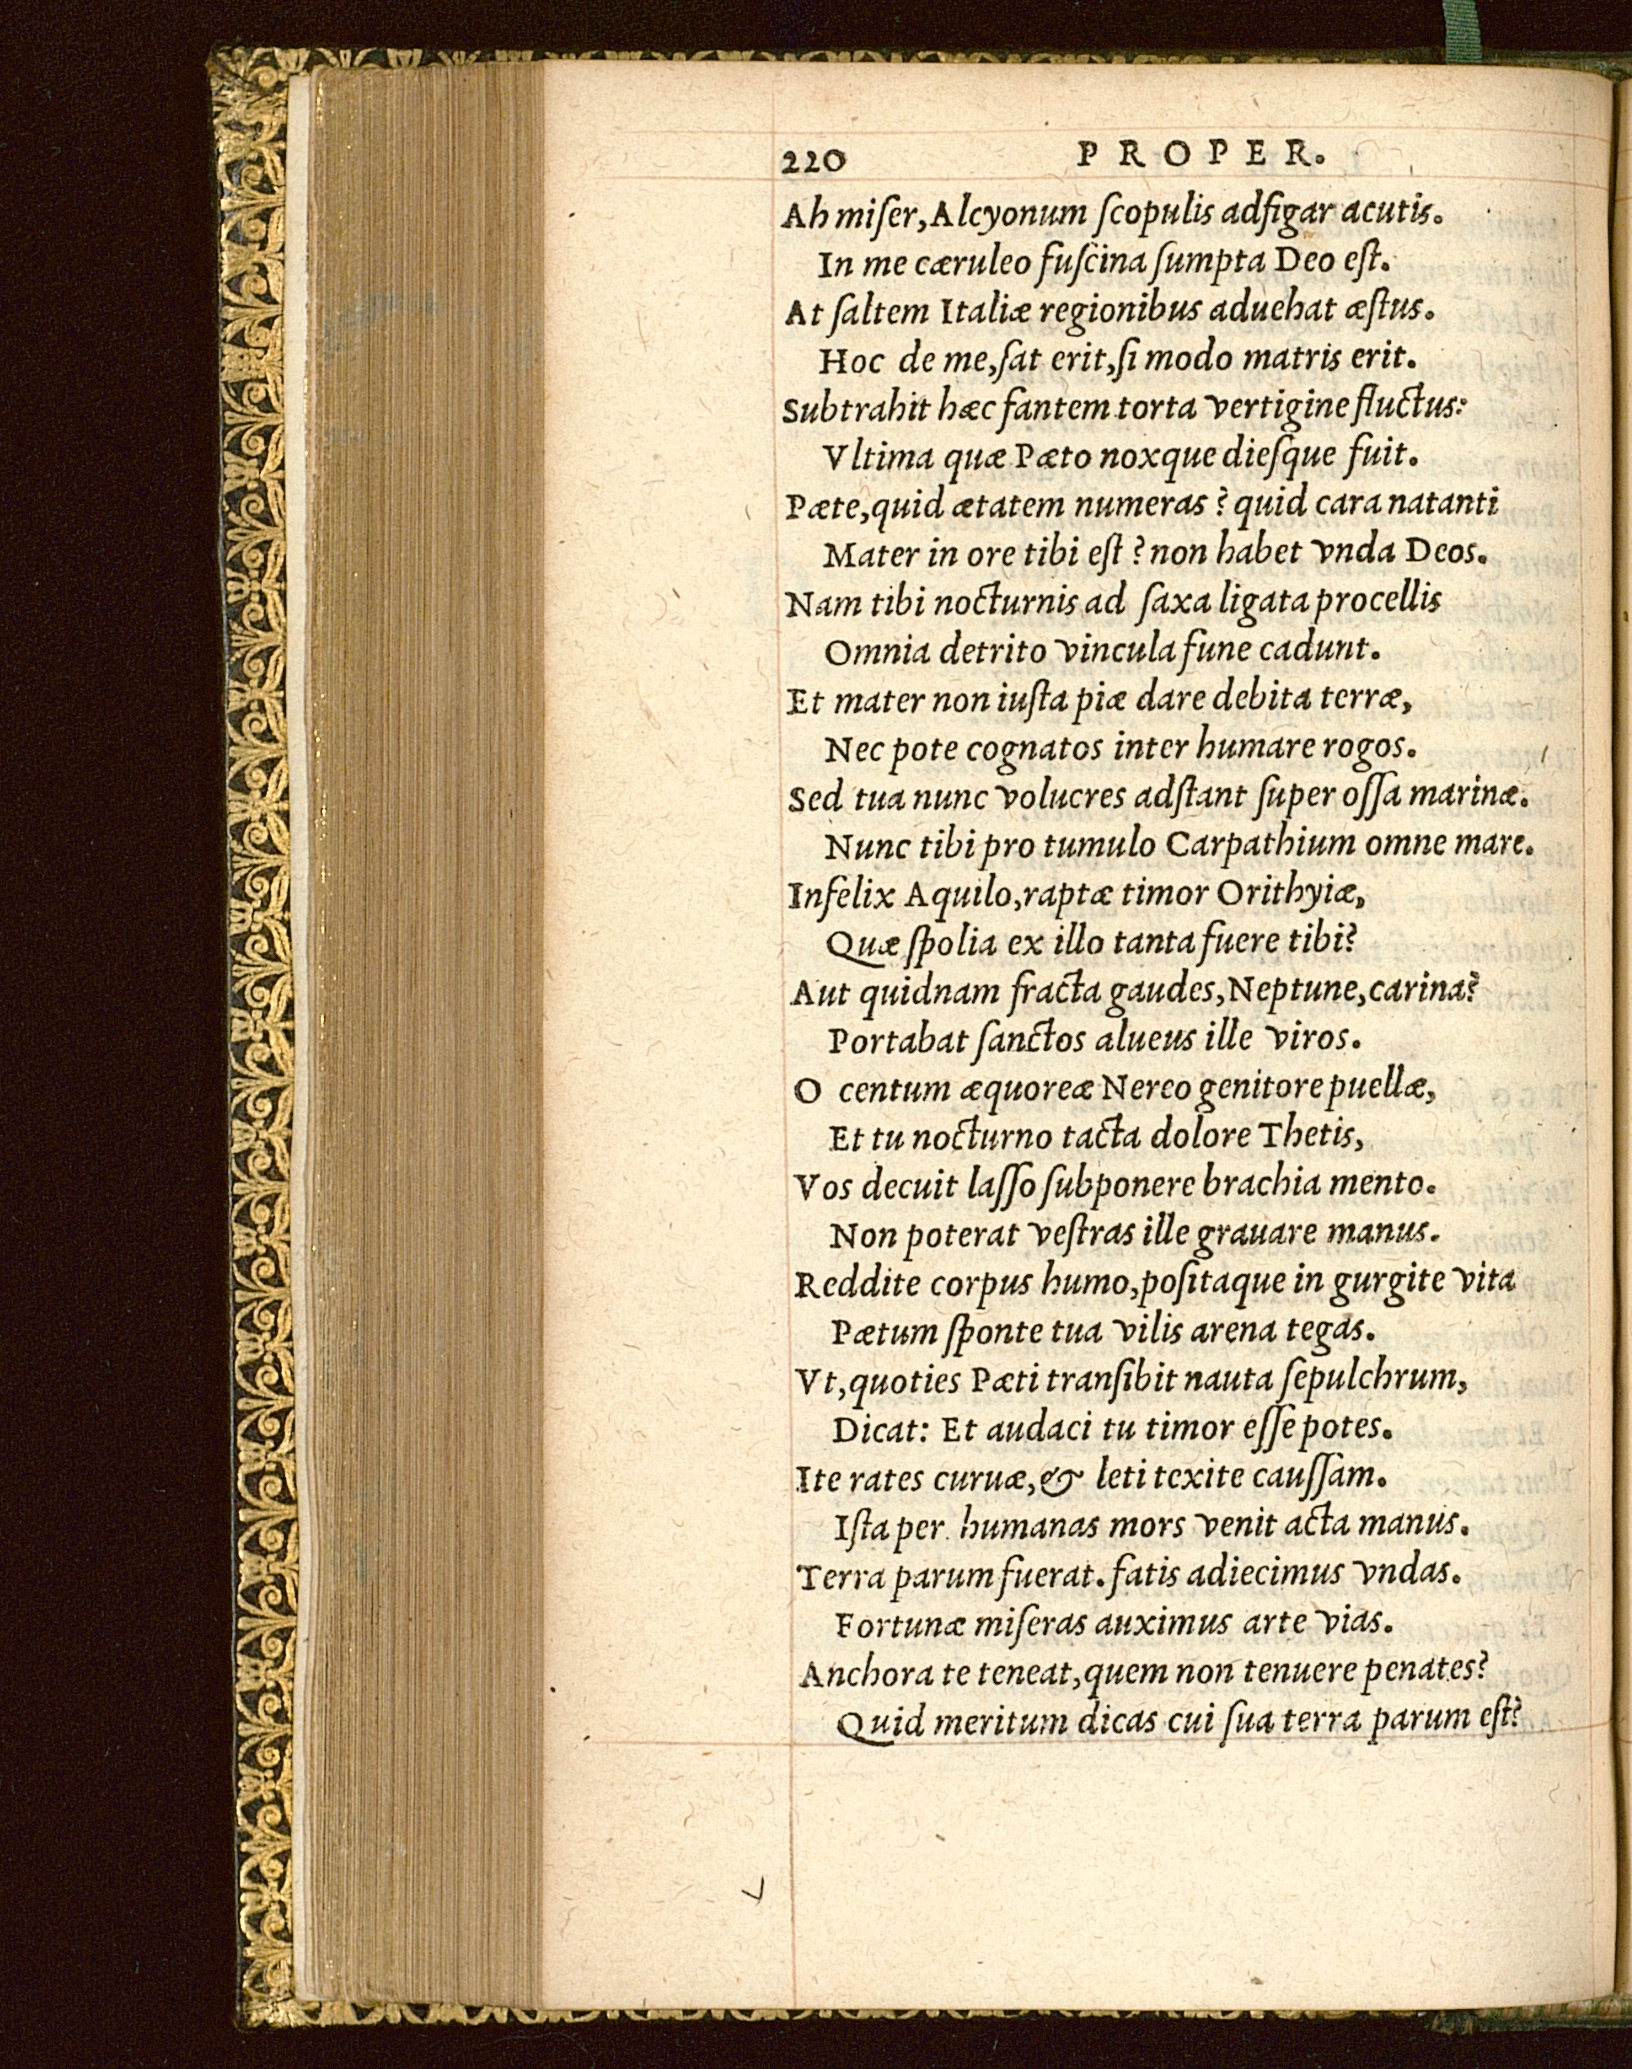 220 PROPER.
Ah miſer, Alcyonum ſcopulis adfigar acutis.
In me cæruleo fuſcina ſumpta Deo eſt.
At ſaltem Italiæ regionibus aduehat æſtus.
Hoc de me, ſat erit, ſi modo matris erit.
Subtrahit hæc fantem torta vertigine fluctus:
Vltima quæ Pæto noxque dieſque fuit.
Pæte, quid ætatem numeras? quid cara natanti
Mater in ore tibi eſt? non habet vnda Deos.
Nam tibi nocturnis ad ſaxa ligata procellis
Omnia detrito vincula fune cadunt.
Et mater non iuſta piæ dare debita terræ,
Nec pote cognatos inter humare rogos.
Sed tua nunc volucres adſtant ſuper oſſa marinæ.
Nunc tibi pro tumulo Carpathium omne mare.
Infelix Aquilo, raptæ timor Orithyiæ,
Quæ ſpolia ex illo tanta fuere tibi?
Aut quidnam fracta gaudes, Neptune, carina?
Portabat ſanctos alueus ille viros.
O centum æquoreæ Nereo genitore puellæ,
Et tu nocturno tacta dolore Thetis,
Vos decuit laſſo ſubponere brachia mento.
Non poterat veſtras ille grauare manus.
Reddite corpus humo, poſitaque in gurgite vita
Pætum ſponte tua vilis arena tegas.
Vt, quoties Pæti tranſibit nauta ſepulchrum,
Dicat: Et audaci tu timor eſſe potes.
Ite rates curuæ, & leti texite cauſſam.
Iſta per humanas mors venit acta manus.
Terra parum fuerat. fatis adiecimus vndas.
Fortunæ miſeras auximus arte vias.
Anchora te teneat, quem non tenuere penates?
Quid meritum dicas cui ſua terra parum eſt?